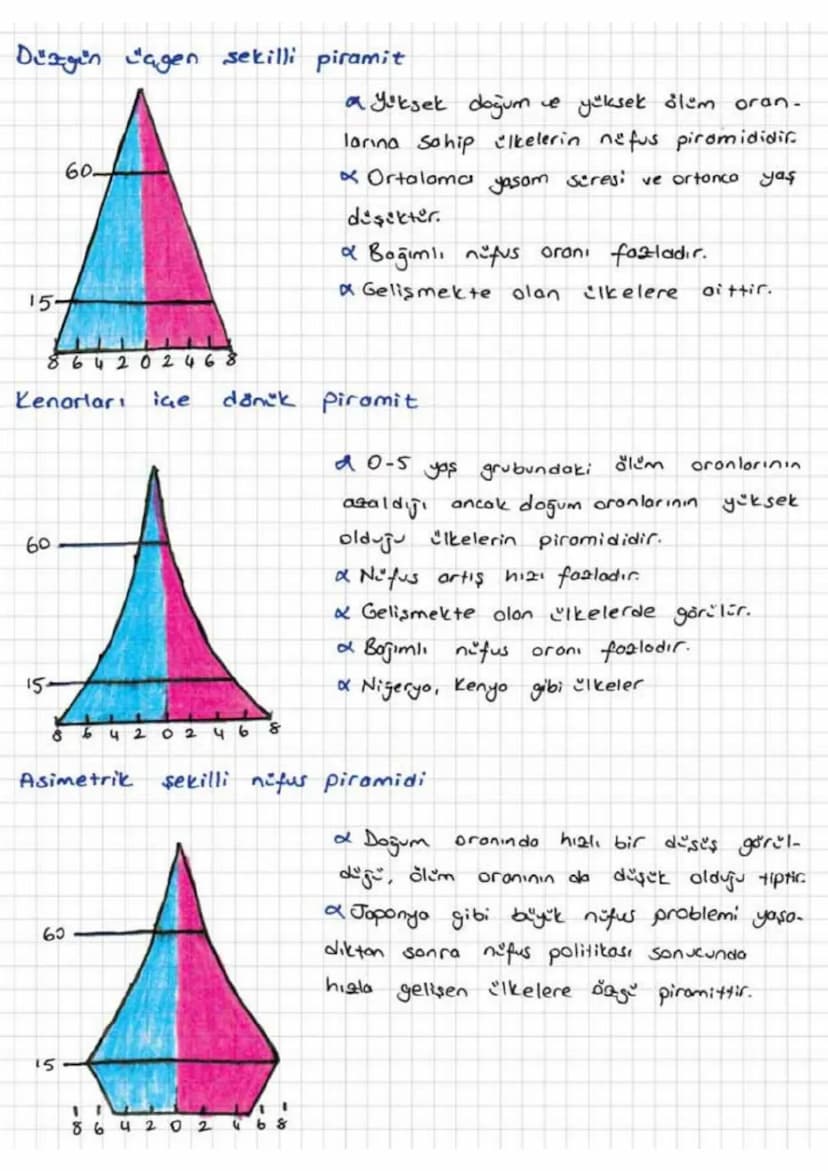 Düzgün üçgen şekilli piramit
α Yüksek doğum ve yüksek ölüm oran-
larına sahip ülkelerin nüfus piramididir.
α Ortalama yaşam süresi ve ortanca yaş
düşüktür.
α Bağımlı nüfus oranı fazladır.
α Gelişmekte olan ülkelere aittir.
60
15
8 6 4 2 0 2 4 6 8
Kenarları içe dönük piramit
α 0-5 yaş grubundaki ölüm oranlarının
azaldığı ancak doğum oranlarının yüksek
olduğu ülkelerin piramididir.
α Nüfus artış hızı fazladır.
α Gelişmekte olan ülkelerde görülür.
α Bağımlı nüfus oranı fazladır.
α Nijerya, Kenya gibi ülkeler
60
15
8 6 4 2 0 2 4 6 8
Asimetrik şekilli nüfus piramidi
α Doğum oranında hızlı bir düşüş görül-
düğü, ölüm oranının da düşük olduğu tiptir.
α Japonya gibi büyük nüfus problemi yaşa-
dıktan sonra nüfus politikası sonucunda
hızla gelişen ülkelere özgü piramittir.
60
15
8 6 4 2 0 2 4 6 8